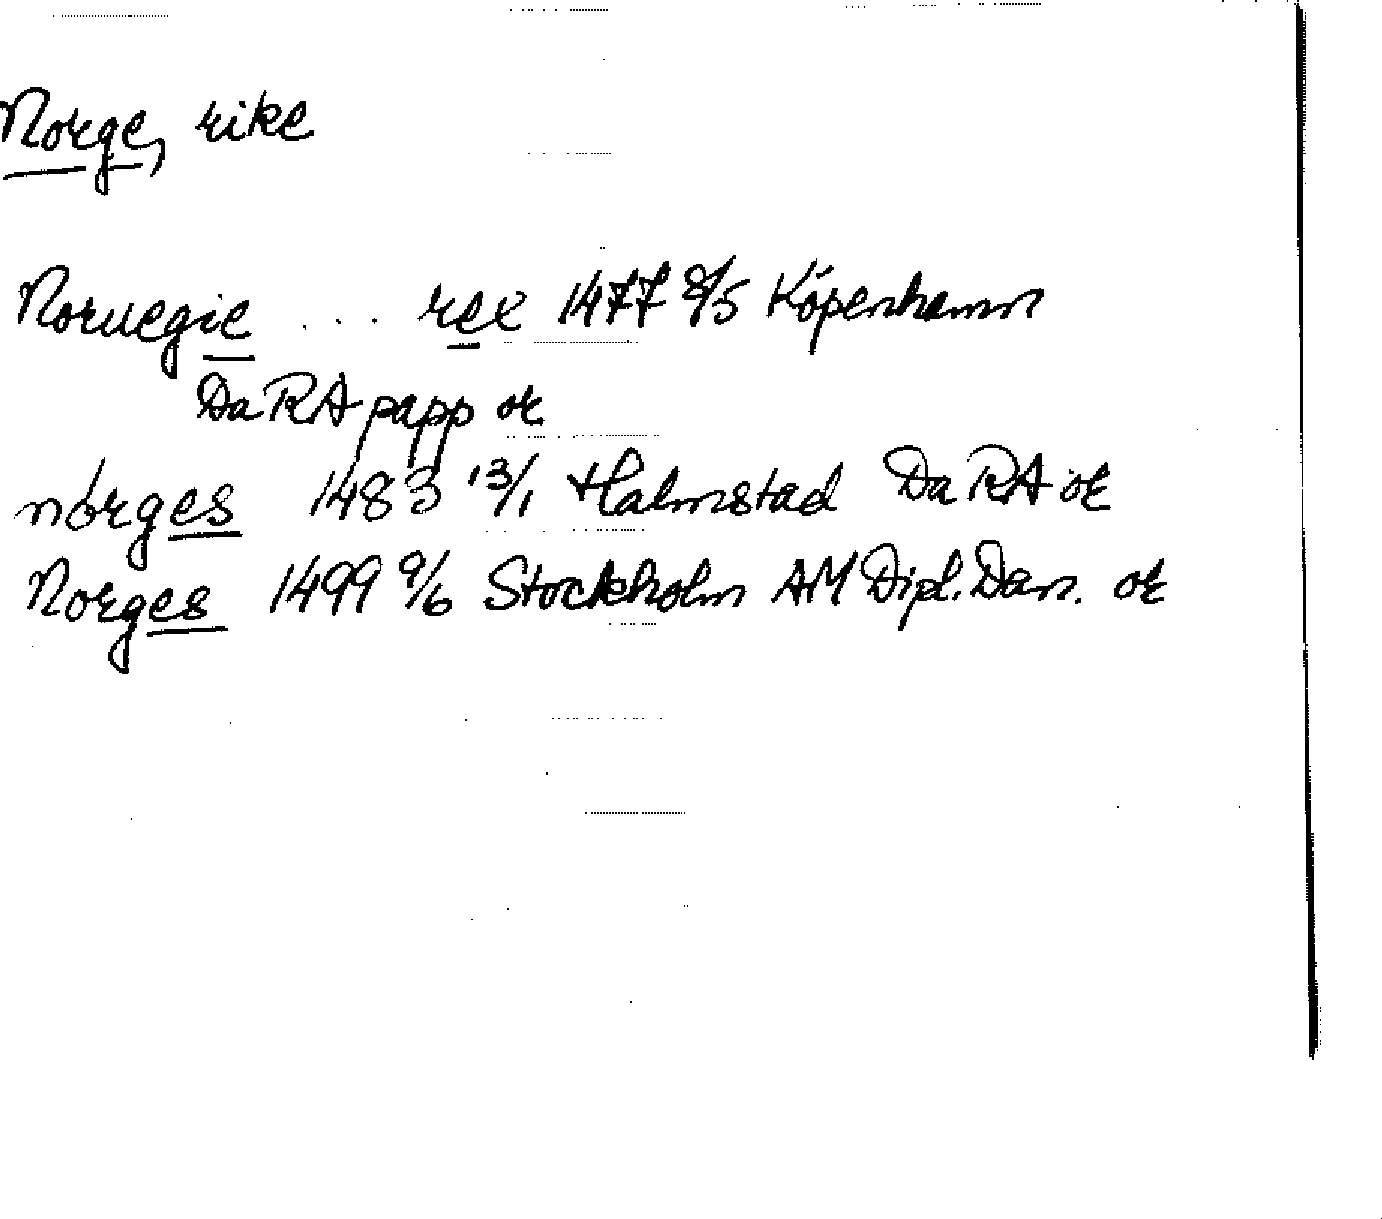 Norge, rike
Noruegie ... rex 1477 8/5 Köpenhamn
DaRA papp or
nórges 1483 13/1 Halmstad DaRA or
Norges 1499 9/6 Stockholm AM Dipl. Dan. or